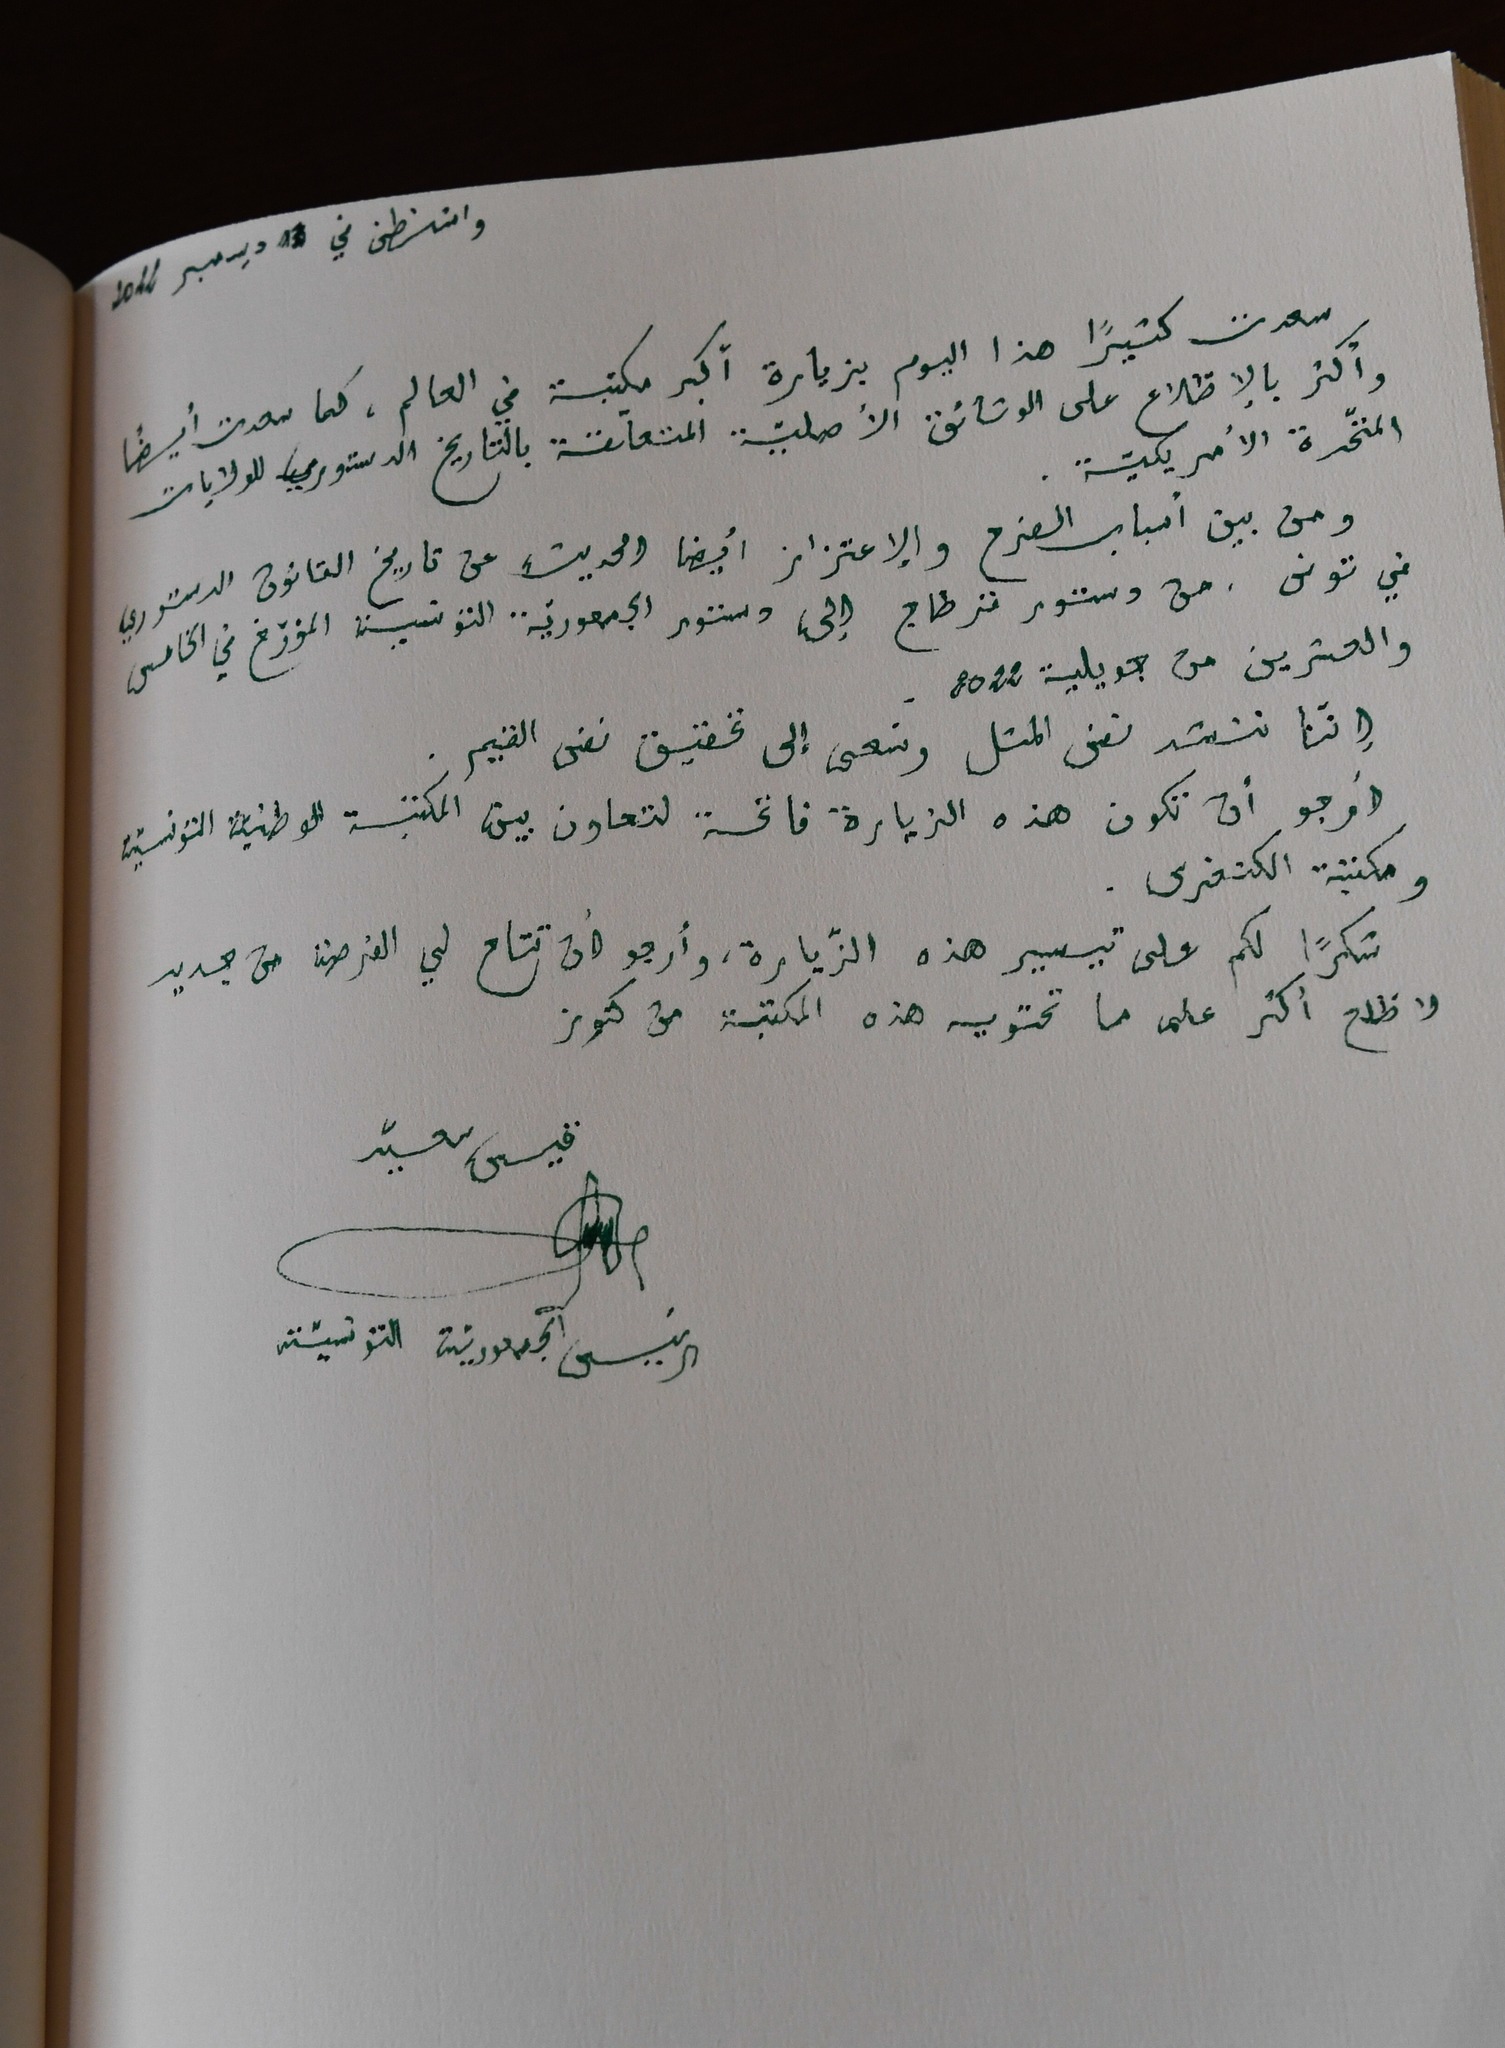 واشنطن في ديسمبر 2022
سعدت كثيرًا هذا اليوم بزيارة أكبر مكتبة في العالم، كما سعدت أيضًا
وأكثر بالإطلاع على الوثائق الأصليّة المتعلّقة بالتّاريخ الدستوري للولايات
المتّحدة الأمريكيّة.
ومن بين أسباب الفرح والإعتزاز أيضا الحديث عن تاريخ القانون الدستوري
في تونس، من دستور قرطاج إلى دستور الجمهوريّة التونسيّة المؤرّخ في الخامس
والعشرين من جويلية 2022.
إنّنا ننشد نفس المثل ونسعى إلى تحقيق نفس القيم.
أرجو أن تكون هذه الزيارة فاتحة لتعاون بين المكتبة الوطنيّة التونسيّة
ومكتبة الكنغرس.
شكرًا لكم على تيسير هذه الزّيارة، وأرجو أن تتاح لي الفرصة من جديد
لاطلاع أكثر على ما تحتويه هذه المكتبة من كنوز
قيس سعيّد
رئيس الجمهوريّة التونسيّة